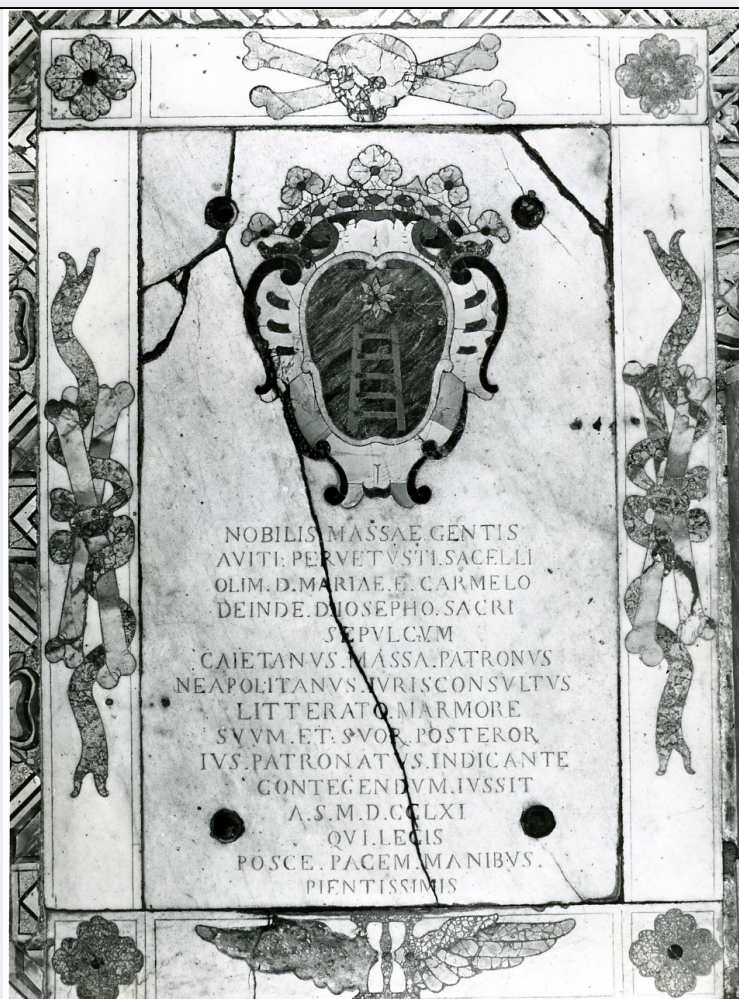 NOBILIS MASSAE GENTIS
AVITI: PERVETVSTI.SACELLI
OLIM. D. MARIAE. E. CARMELO
DEINDE. D IOSEPHO. SACRI
SEPVLCVM
CAIETANVS. MASSA. PATRONVS
NEAPOLITANVS. IVRISCONSVLTVS
LITTERATO MARMORE
SVVM. ET. SVOR POSTEROR
IVS. PATRONATVS. INDICANTE
CONTEGENDVM. IVSSIT
A.S.M.D.CCLXI
QVI. LEGIS
POSCE. PACEM. MANIBVS.
PIENTISSIMIS